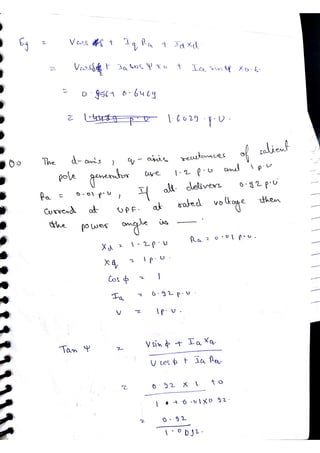 Eg = V cos δ + Iq Ra + Id Xd
= V cos δ + Ia cos Ψ × 0 + Ia sin Ψ × 0.6
= 0.956 + 0.6469
= 1.4429 p.u 1.6029 p.u.
The d-axis, q-axis reactances of salient
pole generator are 1.2 p.u and 1 p.u
Ra = 0.01 p.u, If alt. delivers 0.92 p.u
current at UPF. at rated voltage then
the power angle is ____.
Xd = 1.2 p.u Ra = 0.01 p.u.
Xq = 1 p.u.
Cos ϕ = 1
Ia = 0.92 p.u.
V = 1 p.u.
Tan Ψ = V sin ϕ + Ia Xq
V cos ϕ + Ia Ra
= 0.92 × 1 + 0
1 + 0.01 × 0.92
= 0.92
1.0092.